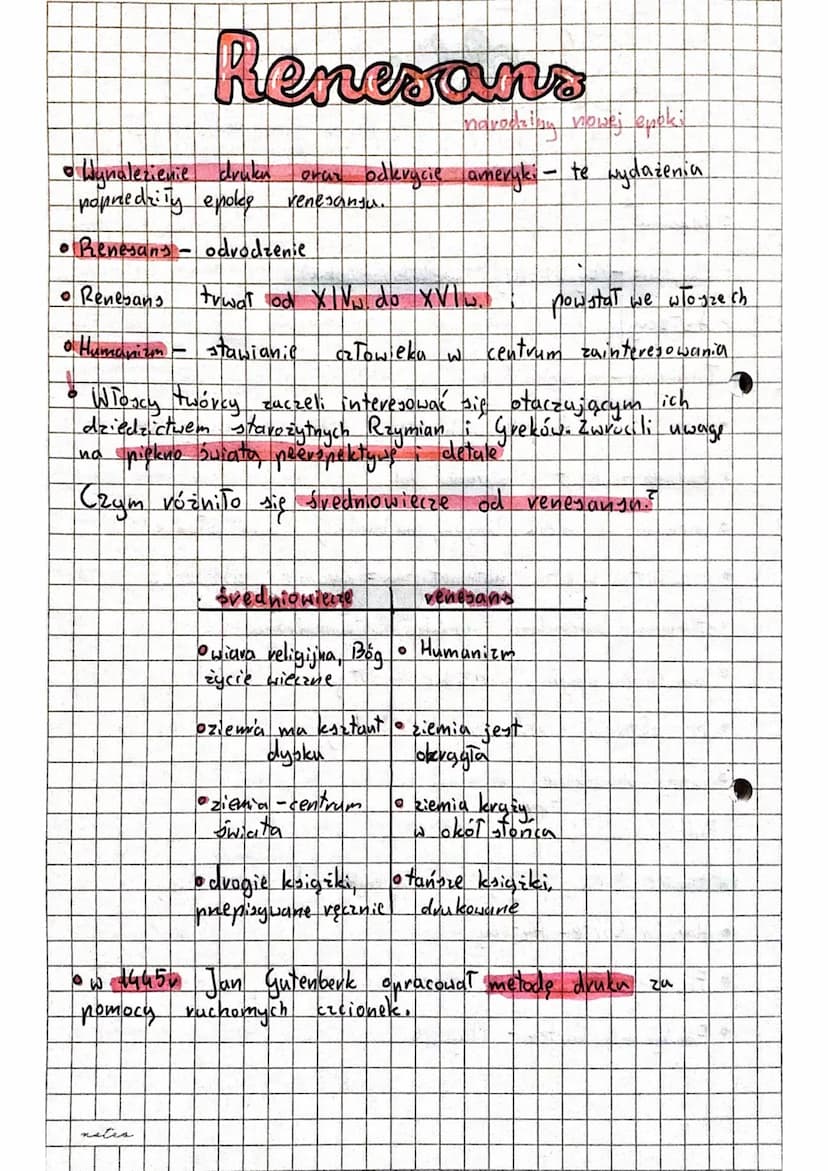 Renesans
narodziny nowej epoki
• Wynalezienie druku oraz odkrycie ameryki – te wydażenia
poprzedziły epokę renesansu.
• Renesans – odrodzenie
• Renesans trwał od XIVw. do XVIw. i powstał we włoszech
• Humanizm – stawianie człowieka w centrum zainteresowania
! • Włoscy twórcy zaczeli interesować się otaczającym ich
dziedzictwem starożytnych Rzymian i Greków. Zwrócili uwagę
na piękno świata, peerspektywę i detale
Czym różniło się średniowiecze od renesansu?
średniowiecze renesans
• wiara religijna, Bóg • Humanizm
życie wieczne
• ziemia ma kształt • ziemia jest
dysku okrągła
• ziemia – centrum • ziemia krąży
świata w okół słońca
• drogie książki, • tańsze książki,
przepisywane ręcznie drukowane
• w 1445r Jan Gutenberk opracował metodę druku za
pomocą ruchomych czcionek.
notes